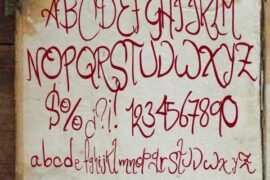 ABCDEFGHIJKLM
NOPQRSTUVWXYZ
$%¿?!! 1234567890
abcdefghijklmnopqrstuvwxyz